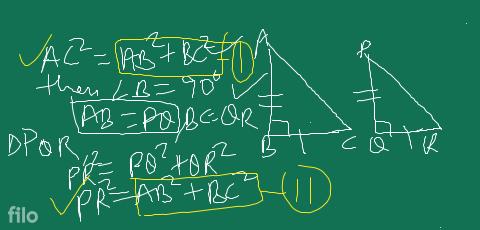 AC² = AB² + BC² - (I)
then ∠B = 90°
AB = PQ, BC = QR
DPQR
PR² = PQ² + QR²
PR² = AB² + BC² - (II)
A
B
C
P
Q
R
filo